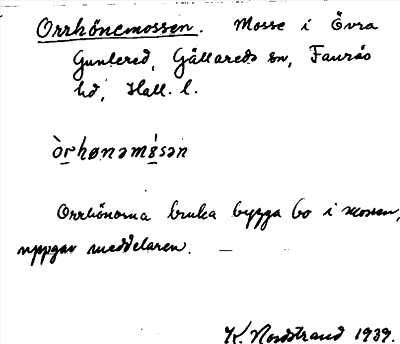 Orrhönemossen. Mosse i Övra
Gunnered, Gällareds sn, Faurås
hd, Hall. l.
òrhønəmåsən
Orrhönorna bruka bygga bo i mossen,
uppgav meddelaren. —
K. Nordstrand 1939.